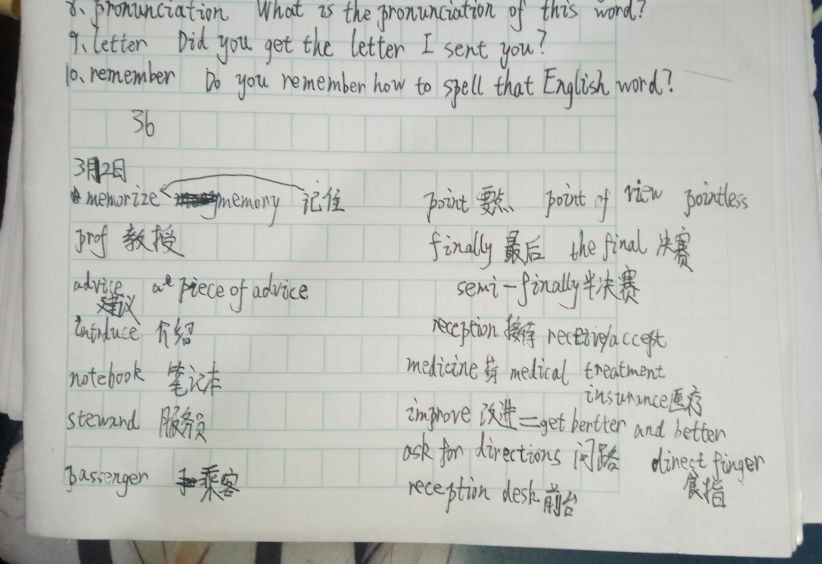 8、pronunciation What is the pronunciation of this word?
9、letter Did you get the letter I sent you?
10、remember Do you remember how to spell that English word?
36
3月2日
memorize memory 记住
prof 教授
advice a piece of advice
建议
introduce 介绍
notebook 笔记本
steward 服务员
passenger 乘客
point 要点 point of view pointless
finally 最后 the final 决赛
semi-finally 半决赛
reception 接待 receive/accept
medicine 药 medical treatment
insurance 医疗
improve 改进=get bertter and better
ask for directions 问路 direct finger
食指
reception desk 前台